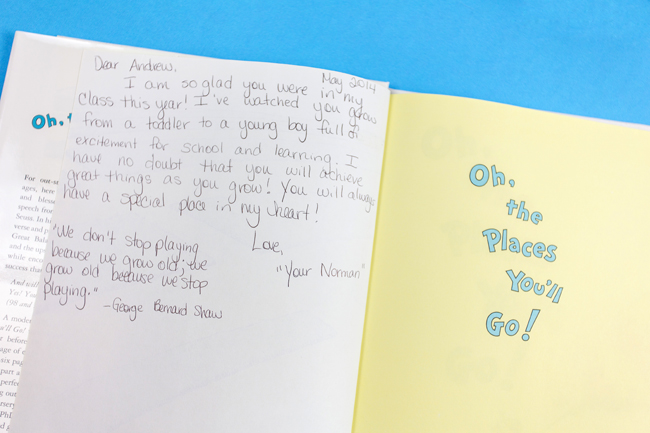 Dear Andrew,
May 2014
I am so glad you were in my
class this year! I've watched you grow
from a toddler to a young boy full of
excitement for school and learning. I
have no doubt that you will achieve
great things as you grow! You will always
have a special place in my heart!
Love,
"Your Norman"
"We don't stop playing
because we grow old; we
grow old because we stop
playing."
-George Bernard Shaw
Oh,
For
ages, here
and
speech from
Seuss. In
verse and
Great
and the
while
success
And will
Yes!
(98 and
A
Go!
before
age of
six
part
out
Oh,
the
Places
You'll
Go!